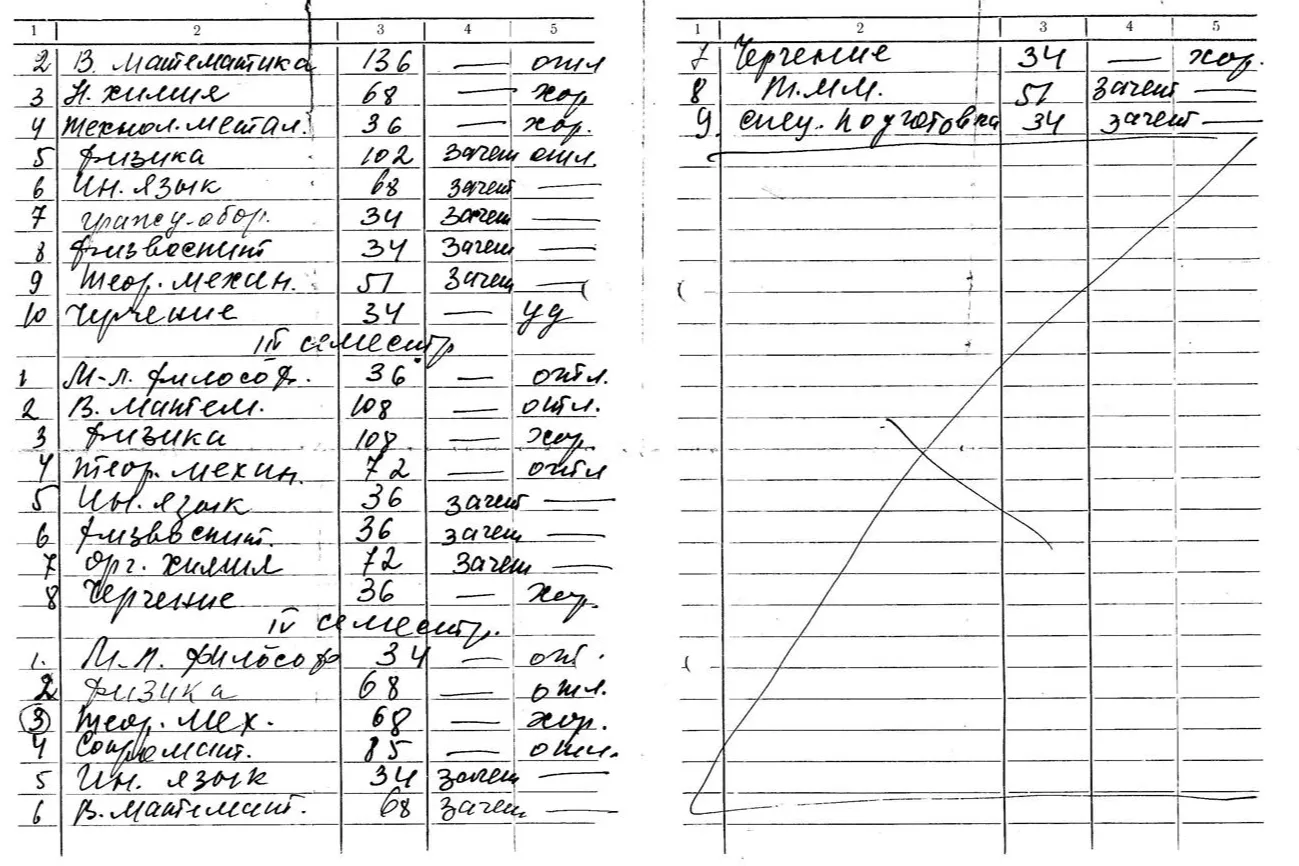 1 2 3 4 5
2 В. Математика 136 — отл
3 Н. химия 68 — хор
4 Технол. метал. 36 — хор.
5 Физика 102 Зачет отл.
6 Ин. язык 68 зачет —
7 гражд. обор. 34 Зачет —
8 Физвоспит 34 Зачет —
9 Теор. механ. 51 Зачет —
10 Черчение 34 — уд
III семестр
1 М-л. философ. 36 — отл.
2 В. матем. 108 — отл.
3 Физика 108 — хор.
4 Теор. механ. 72 — отл
5 Ин. язык 36 зачет —
6 Физвоспит. 36 зачет —
7 Орг. химия 72 Зачет —
8 Черчение 36 — хор.
IV семестр.
1. М-л. философ 34 — отл.
2 Физика 68 — отл.
3 Теор. мех. 68 — хор.
4 Сопромат. 85 — отл.
5 Ин. язык 34 зачет —
6 В. математ. 68 Зачет —
1 2 3 4 5
7 Черчение 34 — хор.
8 Т.М.М. 51 Зачет —
9. спец. подготовка 34 зачет —